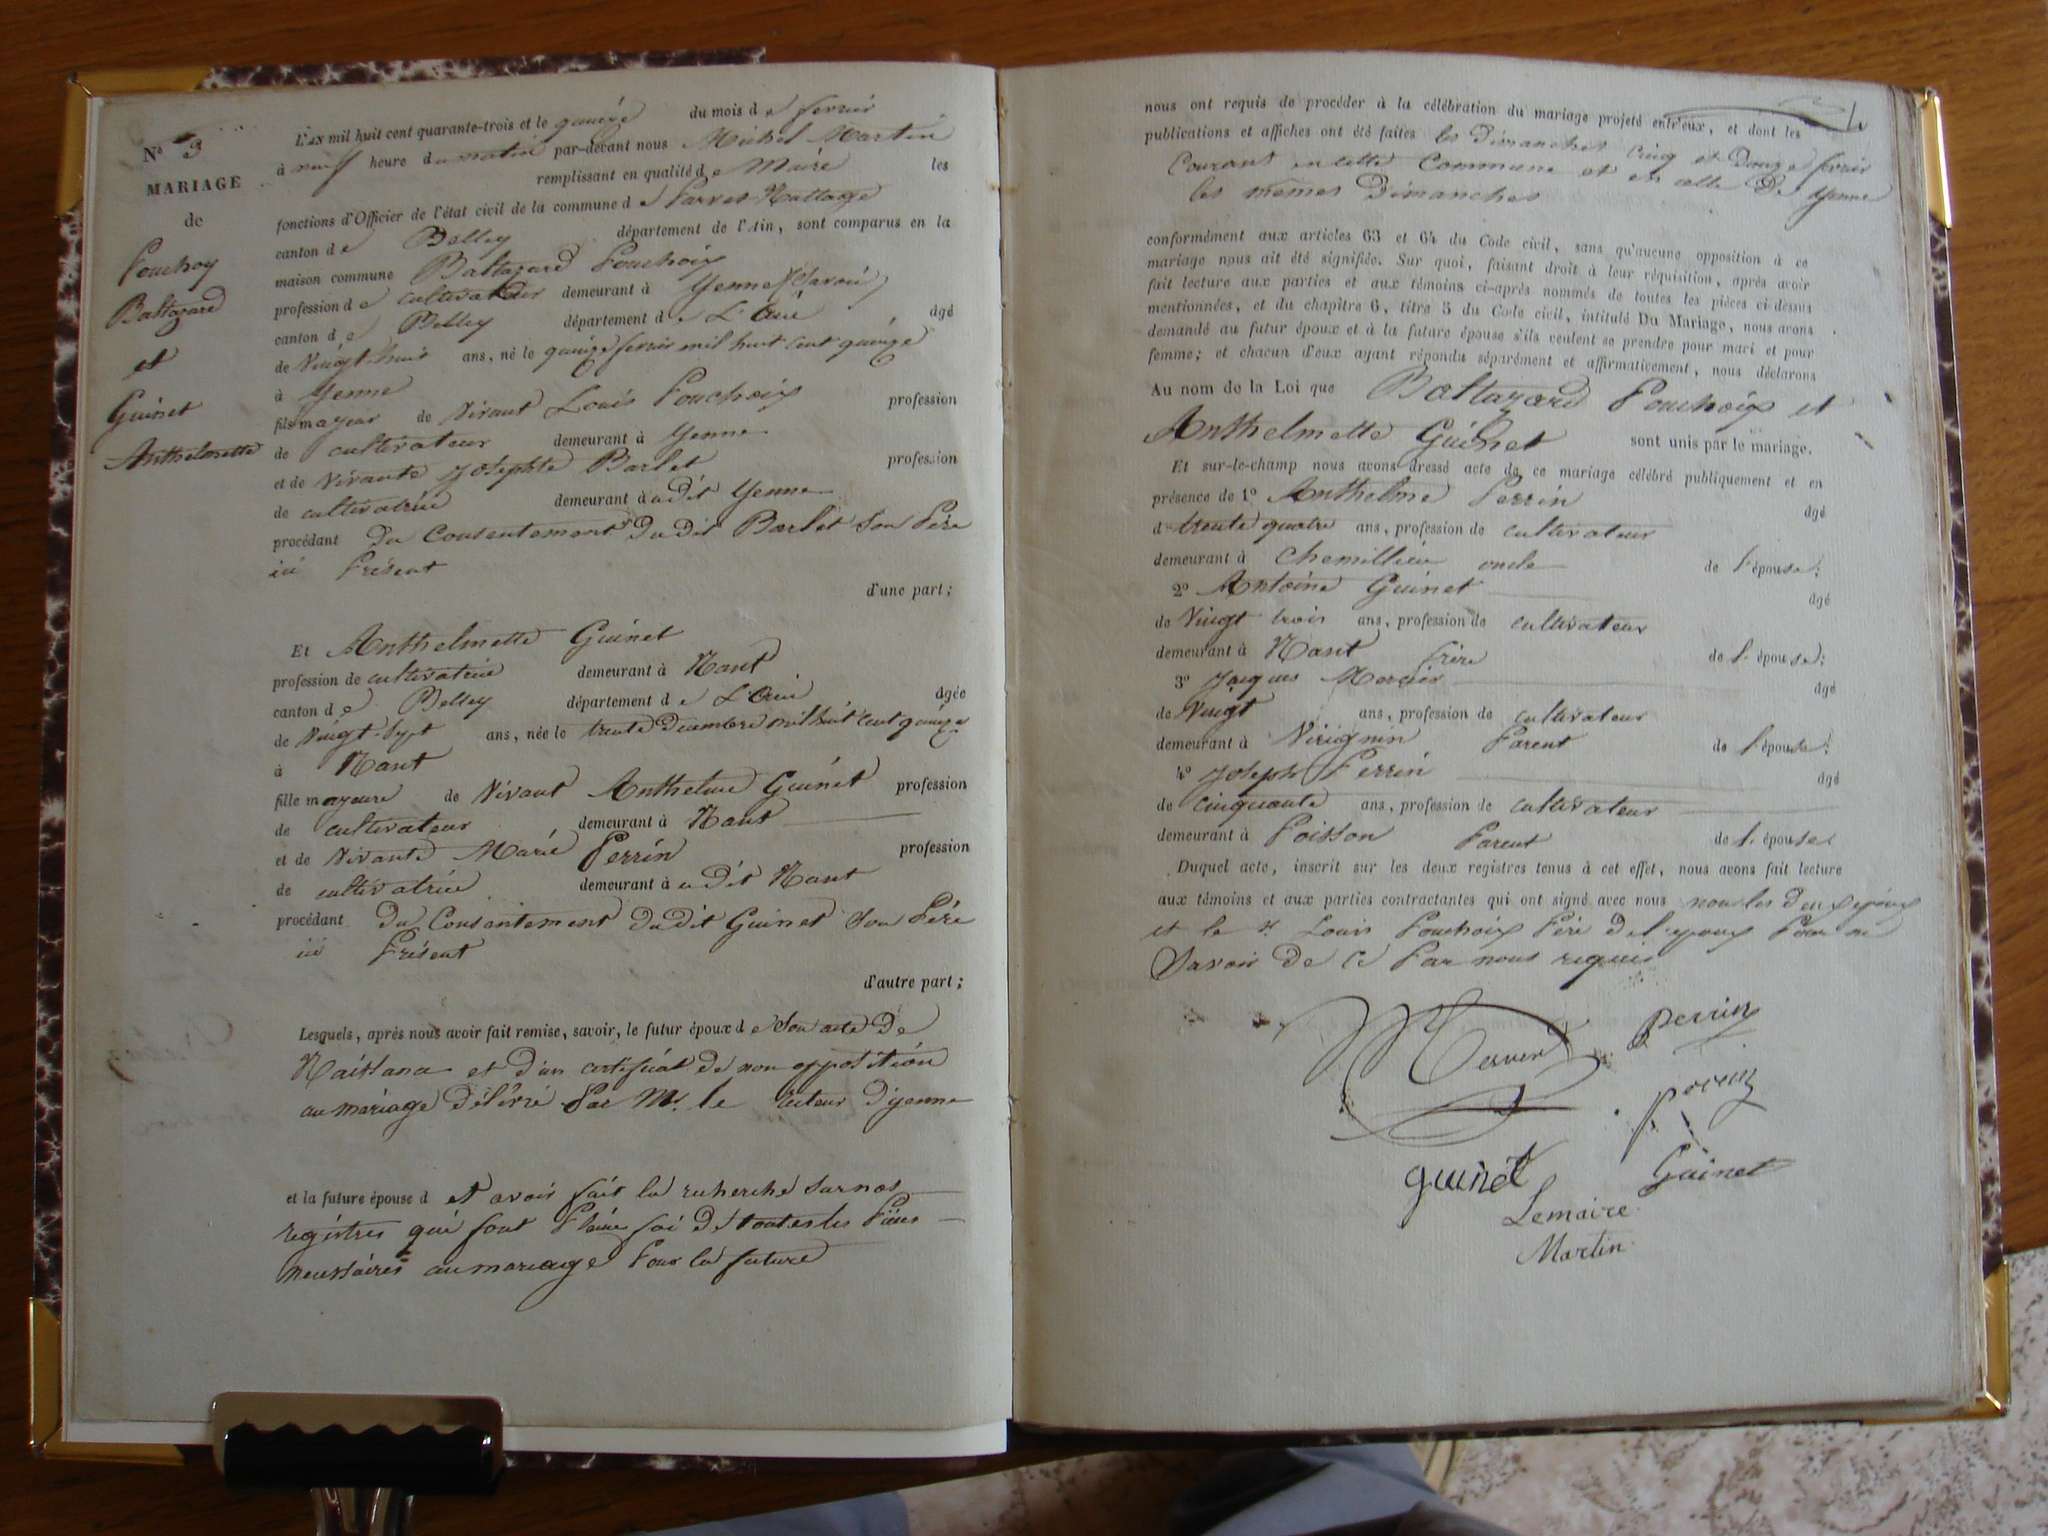 N° 3
MARIAGE
de
Pouchoy
Baltazard
et
Guinet
Anthelmette
L'an mil huit cent quarante-trois et le quinze du mois de ferrier
à neuf heure du matin par-devant nous Michel Martin
remplissant en qualité de Maire les
fonctions d'Officier de l'état civil de la commune de Parves-Nattage
canton de Belley département de l'Ain, sont comparus en la
maison commune Baltazard Pouchoix
profession de cultivateur demeurant à Yenne (Savoie)
canton de Belley département de L'Ain âgé
de Vingt-huit ans, né le quinze ferrier mil huit cent quinze
à Yenne
fils mayeur de Vivant Louis Pouchoix profession
de cultivateur demeurant à Yenne
et de Vivante Josephte Barlet profession
de cultivatrice demeurant à udit Yenne
procédant du Consentement dudit Barlet Son Père
ici Présent
d'une part;
Et Anthelmette Guinet
profession de cultivatrice demeurant à Nant
canton de Belley département de L'Ain âgée
de Vingt-Sept ans, née le trente Decembre mil huit cent quinze
à Nant
fille mayeure de Vivant Anthelme Guinet profession
de cultivateur demeurant à Nant
et de Vivante Marie Perrin profession
de cultivatrice demeurant à udit Nant
procédant du Consentement dudit Guinet Son Père
ici Présent
d'autre part;
Lesquels, après nous avoir fait remise, savoir, le futur époux de Son acte de
Naissance et d'un certificat de non opposition
au mariage Délivré Par Mr. le Recteur d'yenne
et la future épouse d et avoir fait la recherche sur nos
registres qui font Pleine foi de toutes les Pièces
necessaires au mariage Pour la future
nous ont requis de procéder à la célébration du mariage projeté entr'eux, et dont les
publications et affiches ont été faites les Dimanches Cinq et Douze ferrier
Courant en cette Commune et en celle De Yenne
les mêmes Dimanches
conformément aux articles 63 et 64 du Code civil, sans qu'aucune opposition à ce
mariage nous ait été signifiée. Sur quoi, faisant droit à leur réquisition, après avoir
fait lecture aux parties et aux témoins ci-après nommés de toutes les pièces ci-dessus
mentionnées, et du chapitre 6, titre 5 du Code civil, intitulé Du Mariage, nous avons
demandé au futur époux et à la future épouse s'ils veulent se prendre pour mari et pour
femme; et chacun d'eux ayant répondu séparément et affirmativement, nous déclarons
Au nom de la Loi que Baltazard Pouchoix et
Anthelmette Guinet sont unis par le mariage.
Et sur-le-champ nous avons dressé acte de ce mariage célébré publiquement et en
présence de 1° Anthelme Perrin âgé
d trente quatre ans, profession de cultivateur
demeurant à Chemillieu oncle de l'épouse;
2° Antoine Guinet âgé
de Vingt trois ans, profession de cultivateur
demeurant à Nant frère de l'épouse;
3° Jacques Mercier âgé
de Vingt ans, profession de cultivateur
demeurant à Virignin Parent de l'épouse;
4° Joseph Perrin âgé
de cinquante ans, profession de cultivateur
demeurant à Poisson Parent de l'épouse
Duquel acte, inscrit sur les deux registres tenus à cet effet, nous avons fait lecture
aux témoins et aux parties contractantes qui ont signé avec nous non les deux époux
et le Sr. Louis Pouchoix Père de l'epoux Pour ne
Savoir De ce Par nous requis
Mercier Perrin
guinet Guinet
Lemaire
Martin